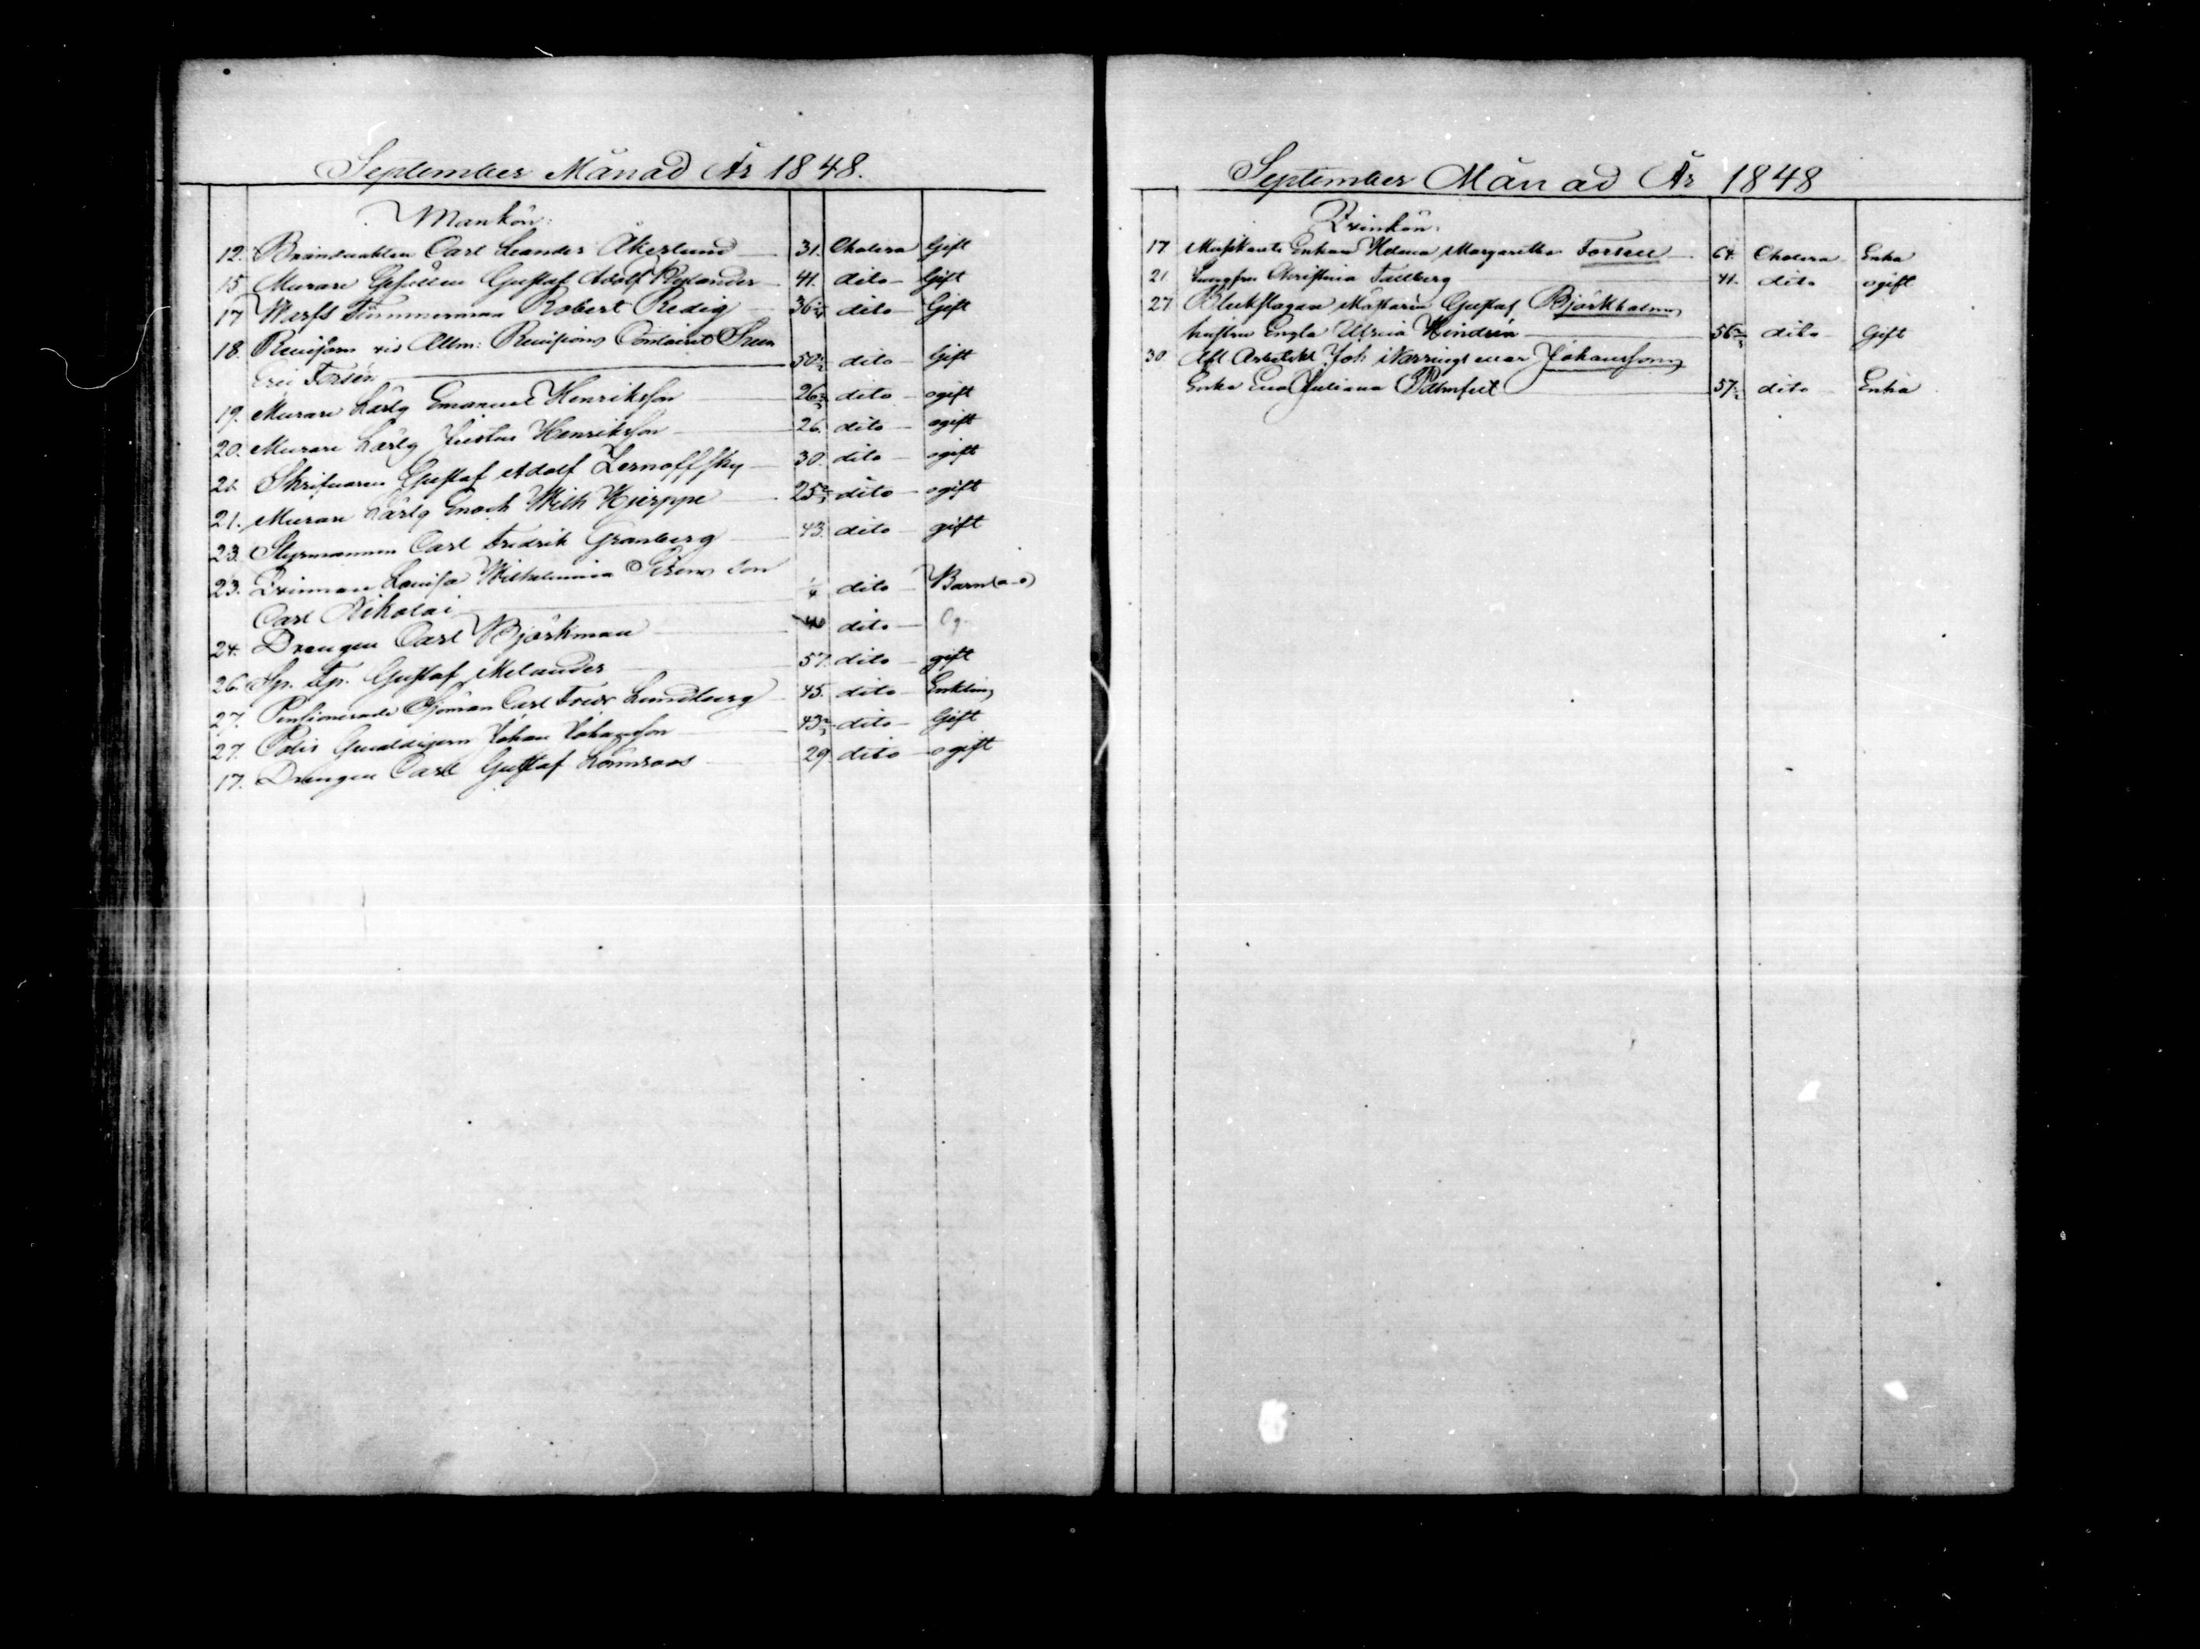 September Månad År 1848.
Mankön:
12. Brandvakten Carl Leander Åkerlund 31. Cholera Gift
15 Murare Gesällen Gustaf Adolf Rylander 41. dito Gift
17 Warfs Timmerman Robert Redig 36 dito Gift
18. Revisorn vid Allm: Revisions Contoiret Sven
Eric Forsén 50 dito Gift
19. Murare Lärlg Emanuel Henriksson 26 dito ogift
20. Murare Lärlg Justus Henriksson 26. dito ogift
21 Skrifvaren Gustaf Adolf Zernoffsky 30. dito ogift
21. Murare Lärlg Enoch Wilh Hjerppe 25 dito ogift
23. Styrmannen Carl Fredrik Granberg 43. dito gift
23. Qvinnan Lovisa Wilhelmina son
Carl Nikolai 1/4 dito Barn
24. Drengen Carl Björkman 40 dito Og
26. Gustaf Melander 57. dito gift
27. Pensionerade Sjöman Carl Fredr Lundberg 45. dito Enkling
27. Polis Gevaldigern Johan Johansson 43 dito Gift
17. Drengen Carl Gustaf Lönnroos 29 dito ogift
September Månad År 1848
Qvinkön:
17 Musikants Enkan Helena Margaretha Forsell 64. Cholera Enka
21 Jungfru Christina Tallberg 41. dito ogift
27 Bleckslagare Mästaren Gustaf Björkholms
hustru Engla Ulrica Hindrén 56 dito Gift
30 Afl Arbetsk Joh Johanssons
Enka Eva Juliana 57 dito Enka